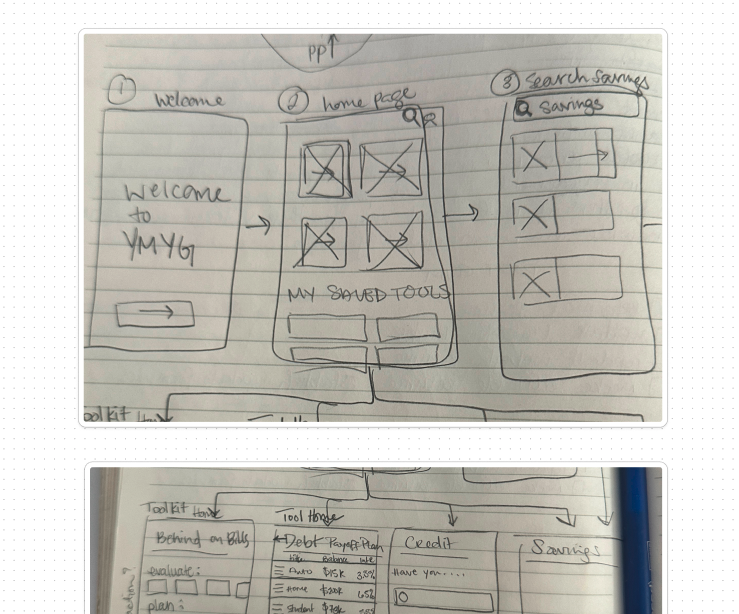 PP↑
① welcome
② home page
③ search savings
savings
Welcome
to
YMYG
MY SAVED TOOLS
Toolkit
Toolkit Home
Tool Home
Behind on Bills
Debt Payoff Plan
Credit
Savings
Balance
evaluate:
Auto $15K 3.5%
Have you....
Home
plan:
Student